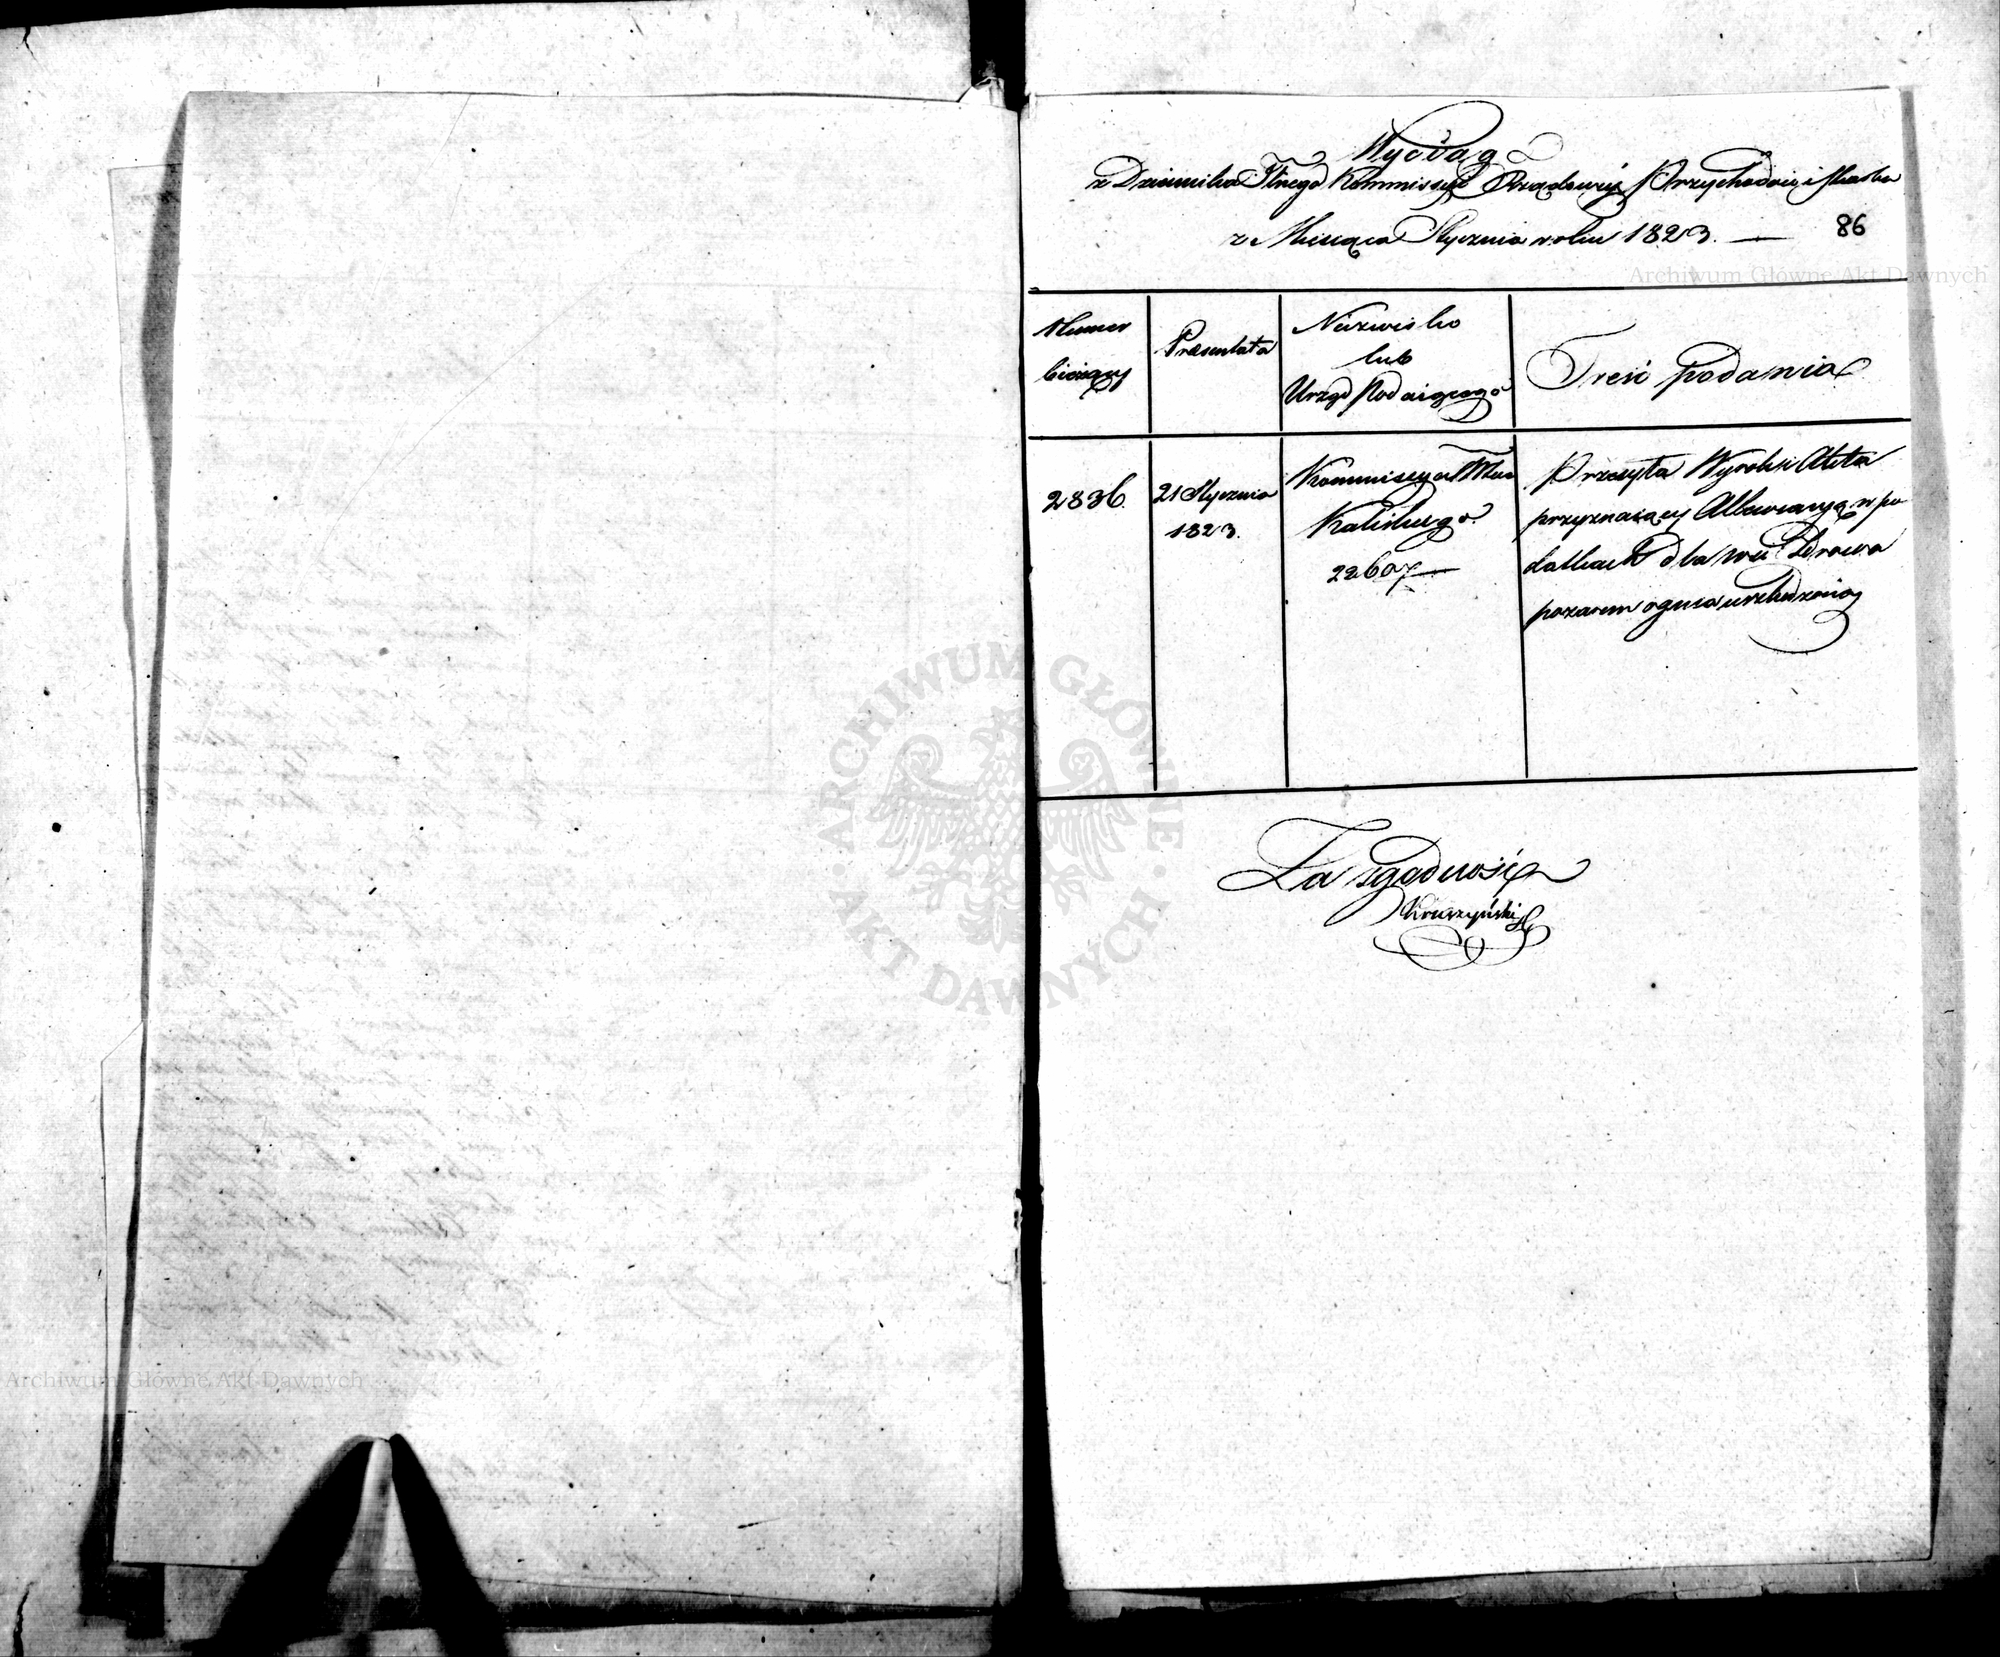 Wyciąg
z Dziennika Głnego Kommissyi Rządowéy Przychodów i Skarbu
z Miesiąca Stycznia roku 1823. —
86
Archiwum Główne Akt Dawnych
Numer
bieżący
Præsentata
Nazwisko
lub
Urząd Podaiącego
Treść podania
2836.
21 Stycznia
1823.
Kommissya Wdz
Kaliskiego
22607 —
Przesyła Wyrok
przyznaiący Allewiacyą w po
datkach dla wsi
pożarem ognia uszkodzoney
Za zgodność
Kruszyński
ARCHIWUM GŁÓWNE AKT DAWNYCH
Archiwum Główne Akt Dawnych